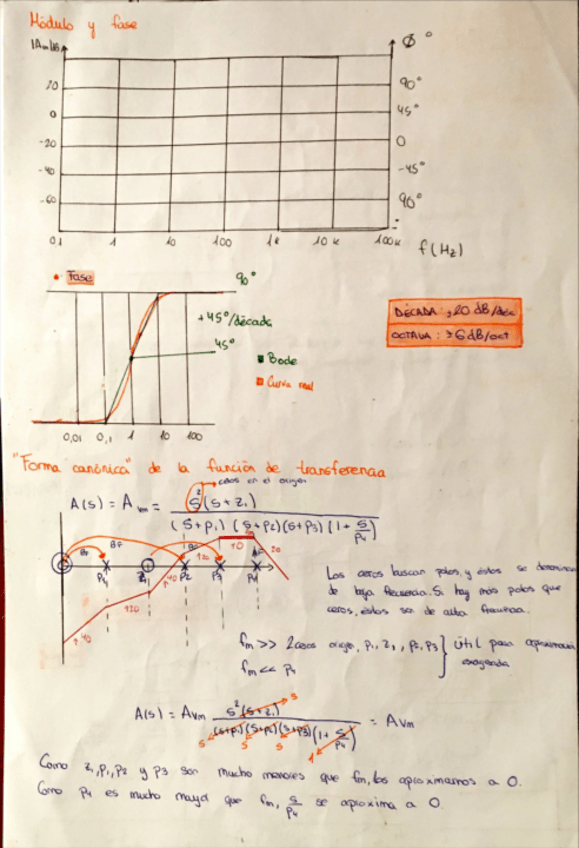 Módulo y fase
|Am|dB
Φ °
20
0
-20
-40
-60
90°
45°
0
-45°
90°
0,1 1 10 100 1k 10k 100k f(Hz)
• Fase
90°
+45°/década
45°
Bode
Curva real
0,01 0,1 1 10 100
DÉCADA: ±20 dB/déc
OCTAVA: ±6dB/oct
"Forma canónica" de la función de transferencia
ceros en el origen
A(s) = Avm = s²(s+z1) / (s+p1)(s+p2)(s+p3)(1+s/p4)
BF BF
Los ceros buscan polos, y éstos se denominan
de baja frecuencia. Si hay más polos que
ceros, éstos son de alta frecuencia.
fm >> 2 ceros origen, p1, z1, p2, p3
fm << p4
útil para aproximación
exagerada
A(s) = Avm s²(s+z1) / (s+p1)(s+p2)(s+p3)(1+s/p4) = Avm
s
s s s 1
Como z1, p1, p2 y p3 son mucho menores que fm, los aproximamos a 0.
Como p4 es mucho mayor que fm, s/p4 se aproxima a 0.